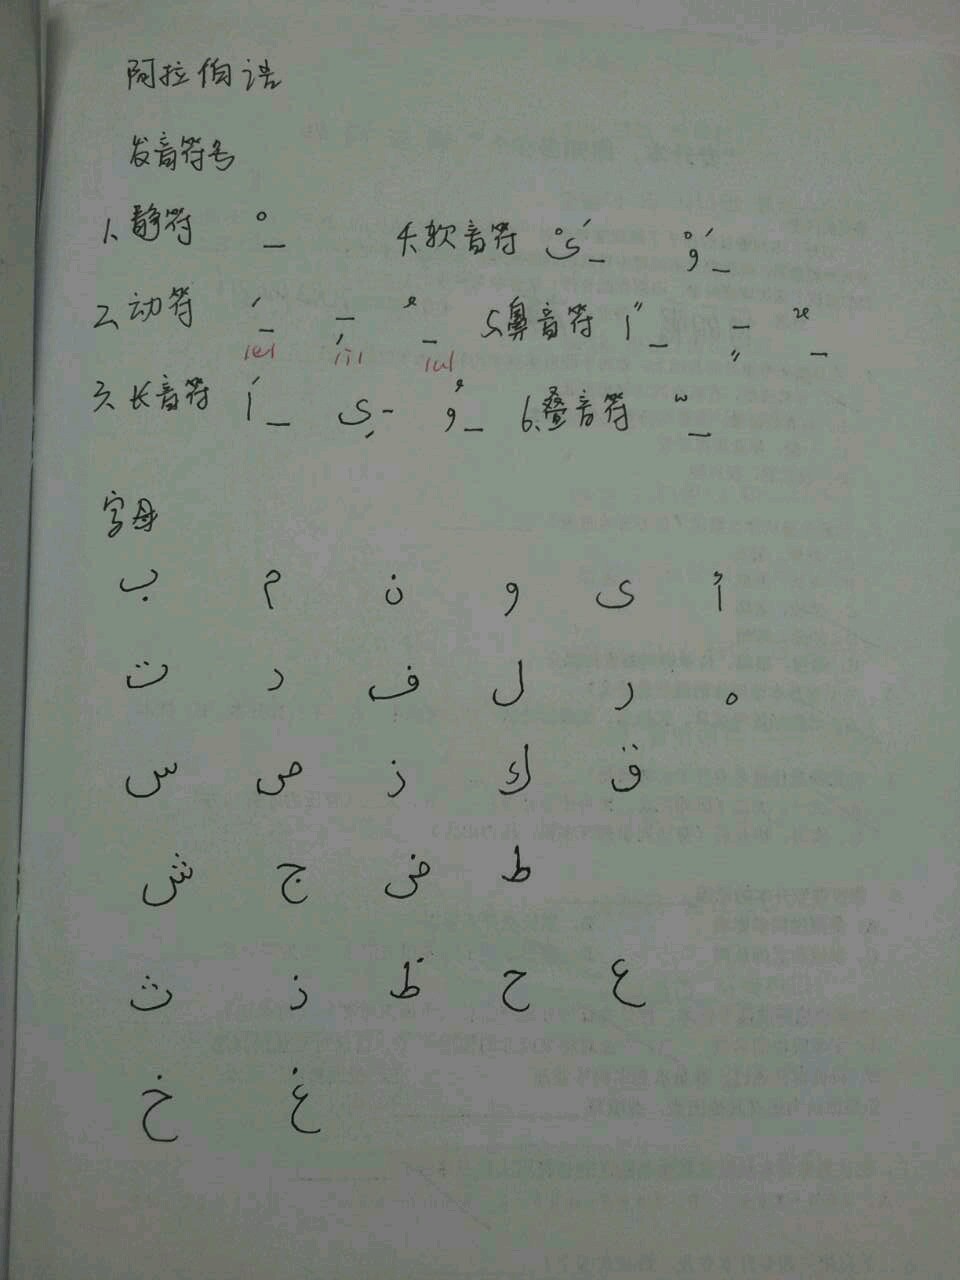 阿拉伯语
发音符号
1、静符 ْ_ 4、软音符 َيْ_ َوْ_
2、动符 َ_ ِ_ ُ_ 5、鼻音符 اً_ ٍ_ ٌ_
/a/ /i/ /u/
3、长音符 َا_ ِي_ ُو_ 6、叠音符 ّ_
字母
ب م ن و ى أ
ت د ف ل ر ه
س ص ز ك ق
ش ج ض ط
ث ذ ظ ح ع
خ غ